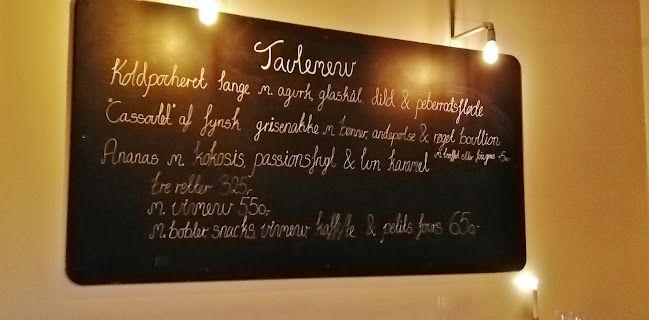 Tavlemenu
Koldpocheret lange m. agurk, glaskål, dild & peberrodsfløde
"Cassoulet" af fynsk grisenakke m. bønner, andepølse & røget bouillion
m. trøffel eller foie gras
Ananas m. kokosis, passionsfrugt & lun karamel
tre retter 325,-
m. vinmenu 550,-
m. bobler, snacks, vinmenu kaffe/te & petits fours 650,-